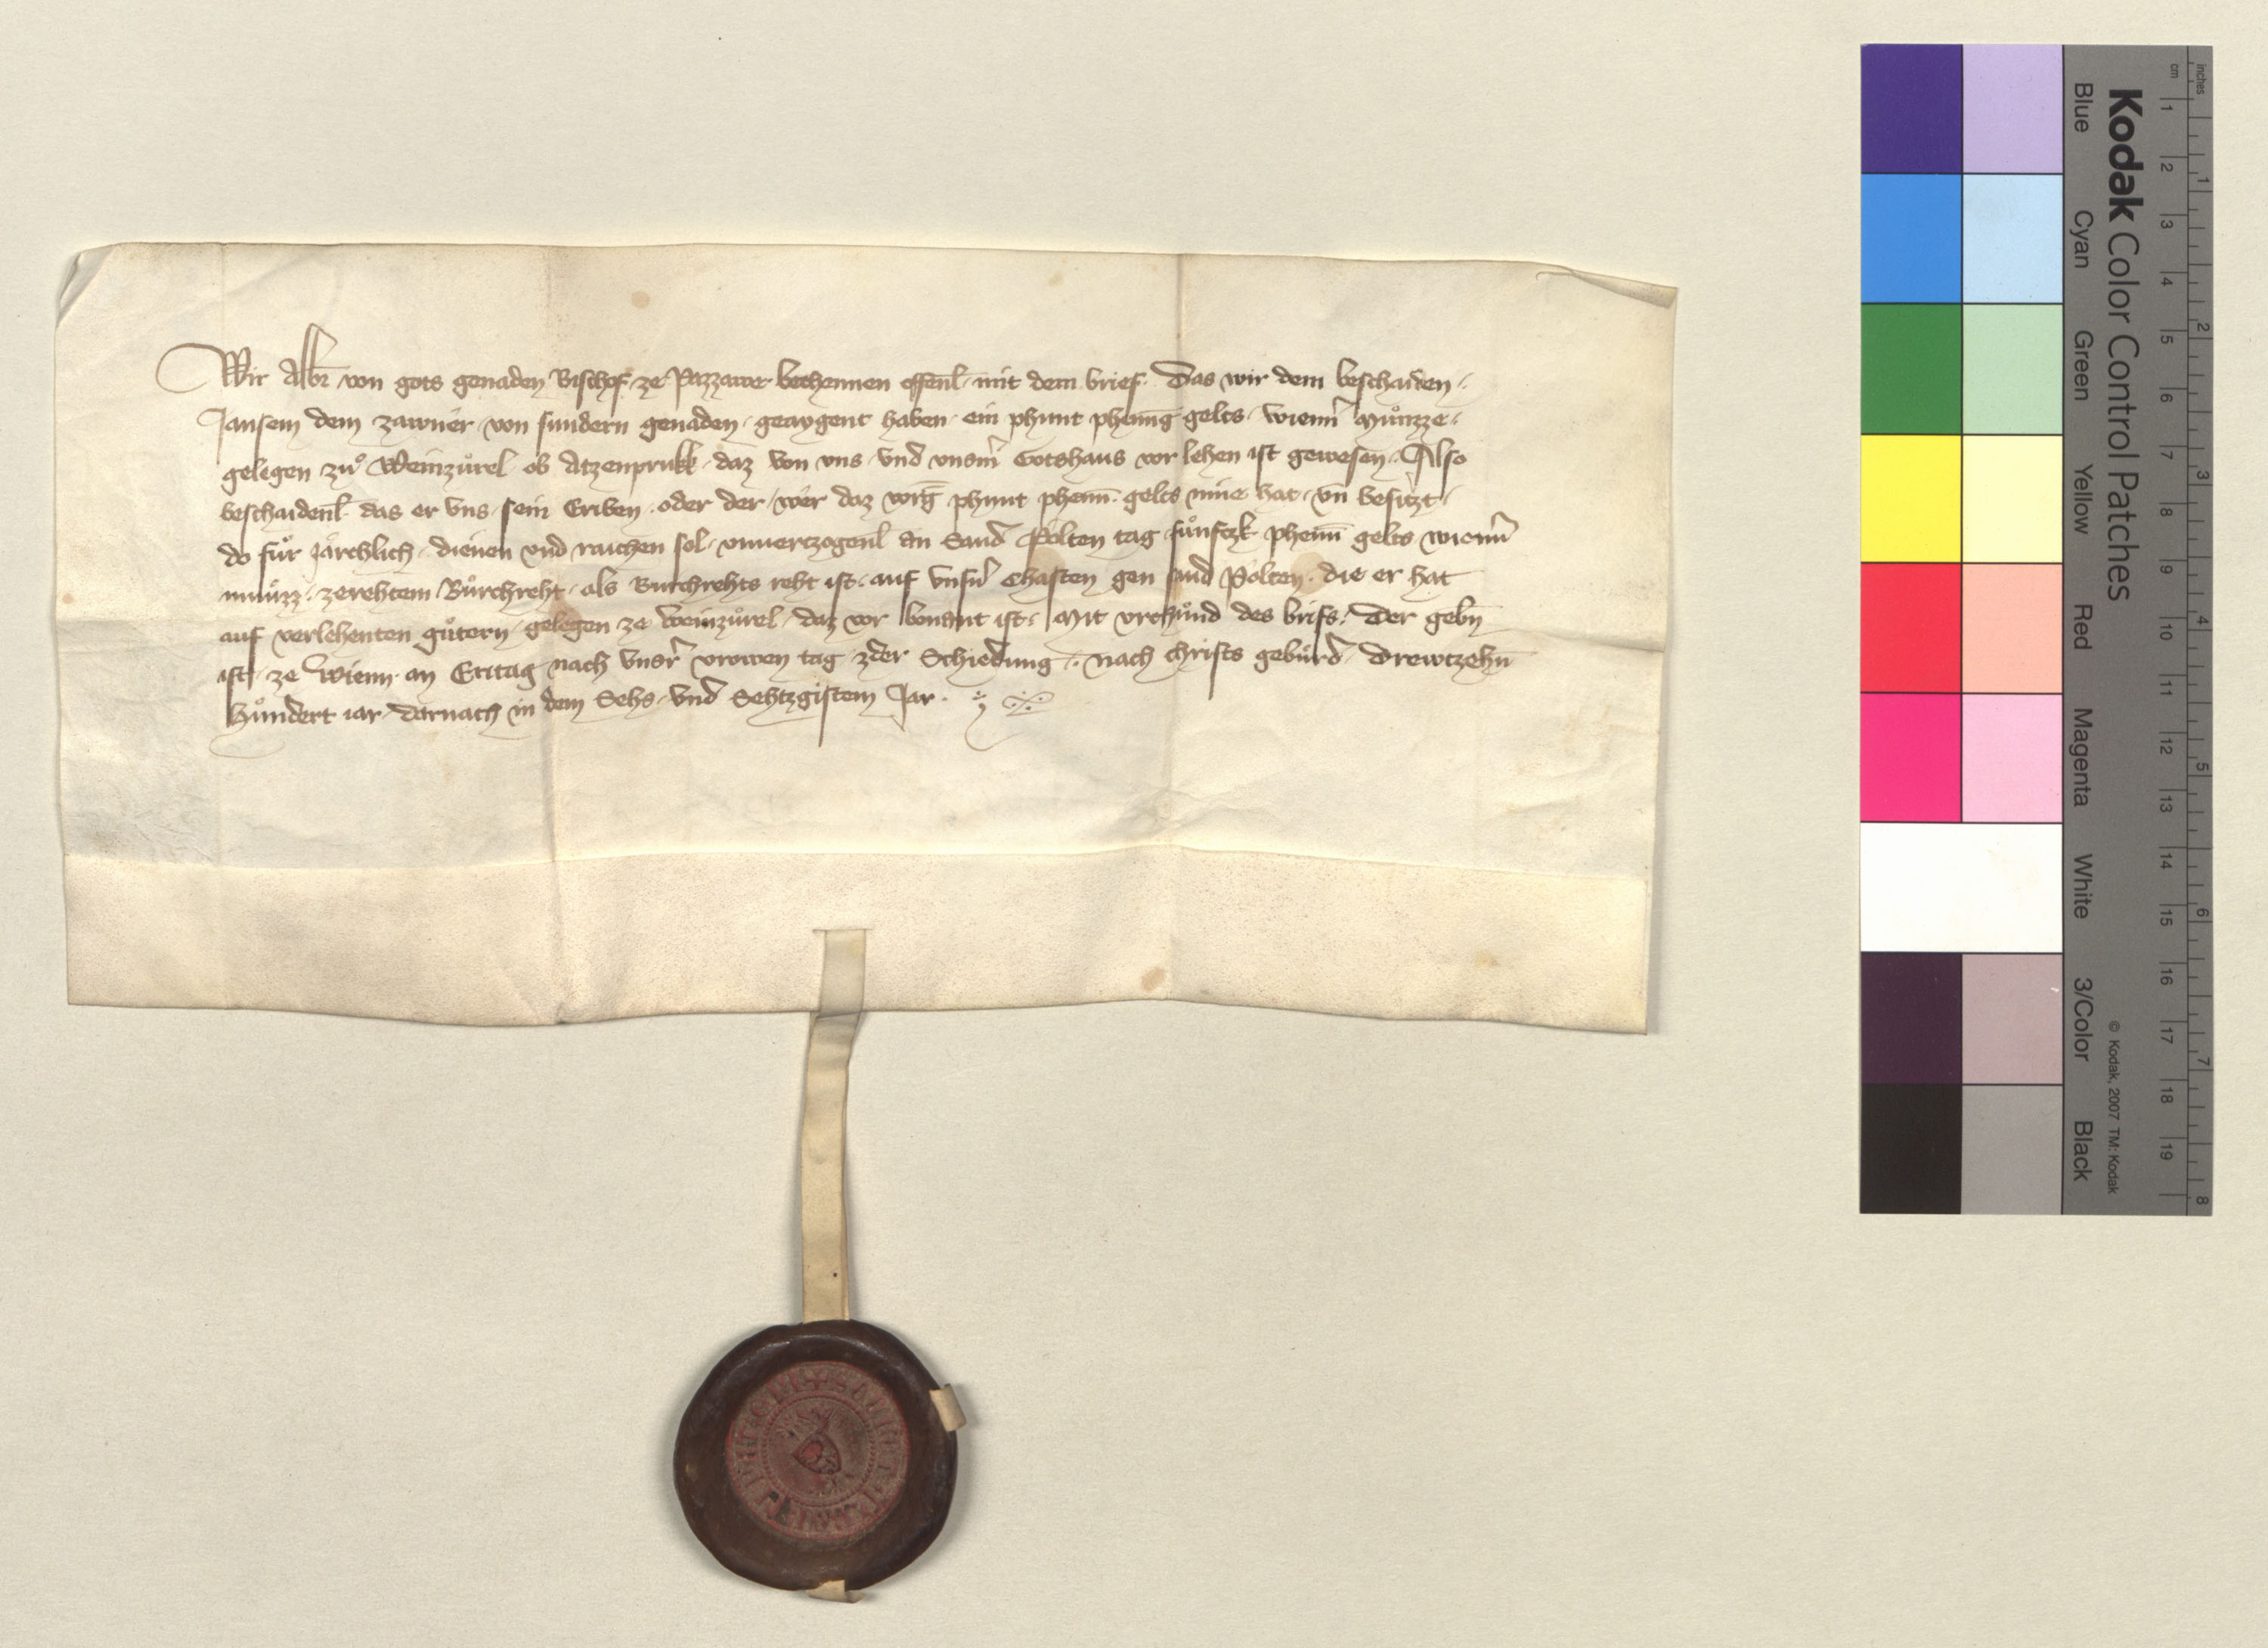 Wir Albr̄ von gots genaden Bischof ze Pazzawe bechennen offenl̄ mit dem brief. Das wir dem beschaiden
Jansem dem zawner von sundern genaden geaygent haben ein phunt phening gelts wienn̄ Muͦnzze
gelegen zuͦ Weinzuͦrel ob Atzenprukk daz von vns vnd vnsm̄ Gotshaus vor lehen ist gewesen. Also
beschaidenl̄ das er vns sein Eriben oder der wer daz vorḡ phunt phenn̄ gelts inne hat vn̄ besitzt
do fuͦr jaͤrchlich dienen vnd raichen sol vnuertzogenl̄ an Sand Poͤlten tag fuͦnftzk phenn̄ gelts wienn̄
muͦnzz zerehtem Buͦrchreht als Burchrehts reht ist auf vnsn̄ Chasten gen sand Poͤlten die er hat
auf verlehenten guͦtern gelegen ze Weinzuͦrel daz vor benant ist. Mit vrchuͦnd des brifs. Der gebn̄
ist ze Wienn an Eritag nach vnsr̄ vrowen tag zder Schiedung. nach christs gebuͦrd Drewtzehn̄
Huͦndert iar darnach in dem Sehs vnd Sehtzgistem Jar.
Kodak Color Control Patches
© Kodak, 2007 TM: Kodak
Blue Cyan Green Yellow Red Magenta White 3/Color Black
inches 1 2 3 4 5 6 7 8
cm 1 2 3 4 5 6 7 8 9 10 11 12 13 14 15 16 17 18 19